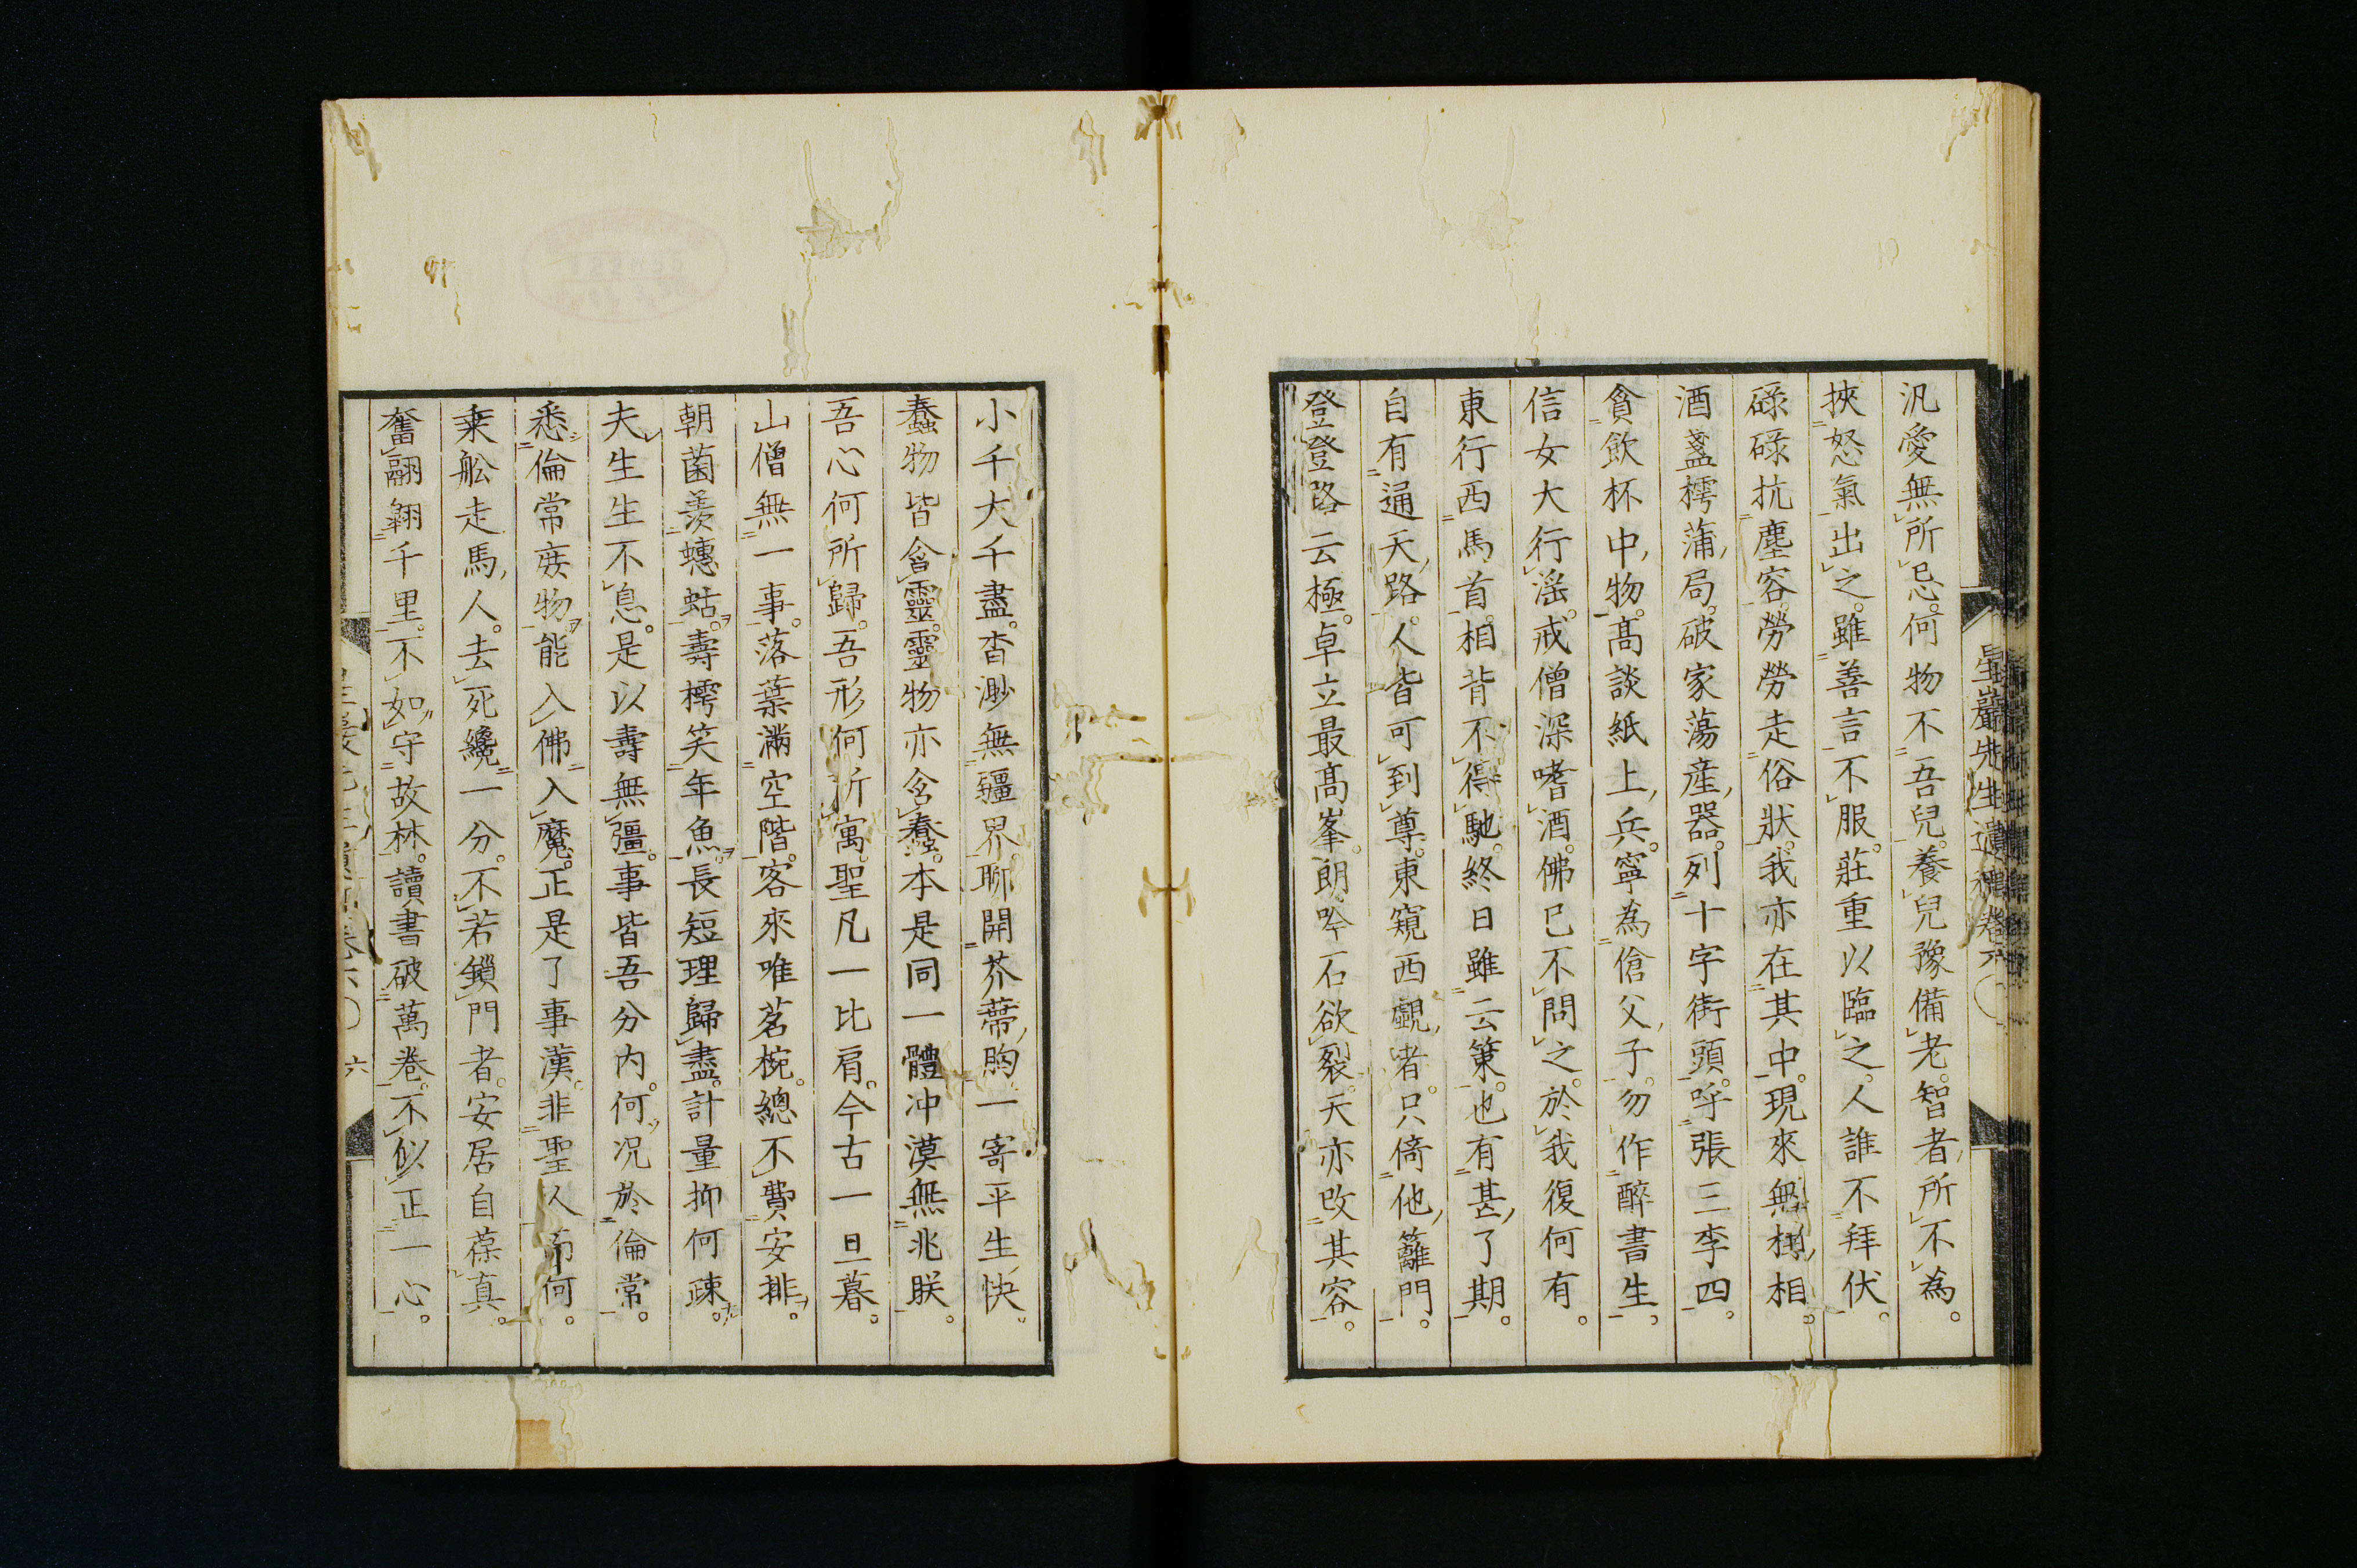 星巖先生遺稿卷六
汎愛無所忌。何物不吾兒。養兒豫備老。智者所不為。
挾怒氣出之。雖善言不服。莊重以臨之。人誰不拜伏。
碌碌抗塵容。勞勞走俗狀。我亦在其中。現來無相相。
酒盞樗蒲局。破家蕩産器。列十字街頭。呼張三李四。
貪飲杯中物。高談紙上兵。寧為傖父子。勿作醉書生。
信女大行滛。戒僧深嗜酒。佛已不問之。於我復何有。
東行西馬首。相背不得馳。終日雖云策。也有甚了期。
自有通天路。人皆可到尊。東窺西覷者。只倚他籬門。
登登路云極。卓立最高峯。朗吟石欲裂。天亦改其容。
小千大千盡。杳渺無疆界。聊開芥蔕胷。一寄平生快。
蠢物皆含靈。靈物亦含蠢。本是同一體。冲漠無兆朕。
吾心何所歸。吾形何所寓。聖凡一比肩。今古一旦暮。
山僧無一事。落葉滿空階。客來唯茗椀。總不費安排。
朝菌羨蟪蛄。壽樗笑年魚。長短理歸盡。計量抑何疎。
夫生生不息。是以壽無彊。事皆吾分内。何况於倫常。
悉倫常庶物。能入佛入魔。正是了事漢。非聖人而何。
乗舩走馬人。去死纔一分。不若鎖門者。安居自葆真。
奮翮翱千里。不如守故林。讀書破萬卷。不似正一心。
六